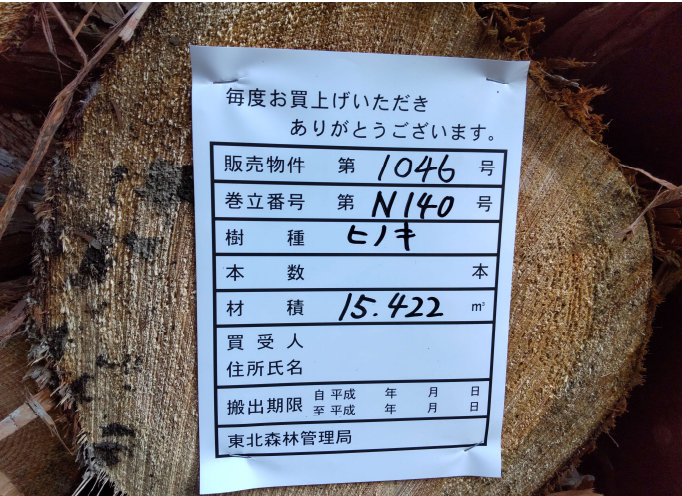 毎度お買上げいただき
ありがとうございます。
販売物件 第 1046 号
巻立番号 第 N140 号
樹種 ヒノキ
本数 本
材積 15.422 m³
買受人
住所氏名
搬出期限 自 平成 年 月 日
至 平成 年 月 日
東北森林管理局